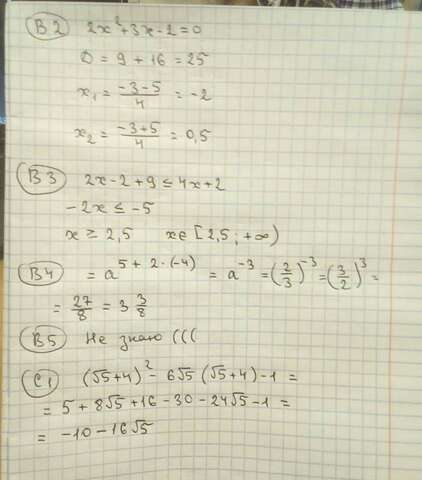 В2 2x² + 3x - 2 = 0
D = 9 + 16 = 25
x₁ = (-3-5)/4 = -2
x₂ = (-3+5)/4 = 0,5
В3 2x - 2 + 9 ≤ 4x + 2
-2x ≤ -5
x ≥ 2,5 x ∈ [2,5; +∞)
В4 = a^(5 + 2·(-4)) = a⁻³ = (2/3)⁻³ = (3/2)³ =
= 27/8 = 3 3/8
В5 Не знаю (((
С1 (√5+4)² - 6√5 (√5+4) - 1 =
= 5 + 8√5 + 16 - 30 - 24√5 - 1 =
= -10 - 16√5